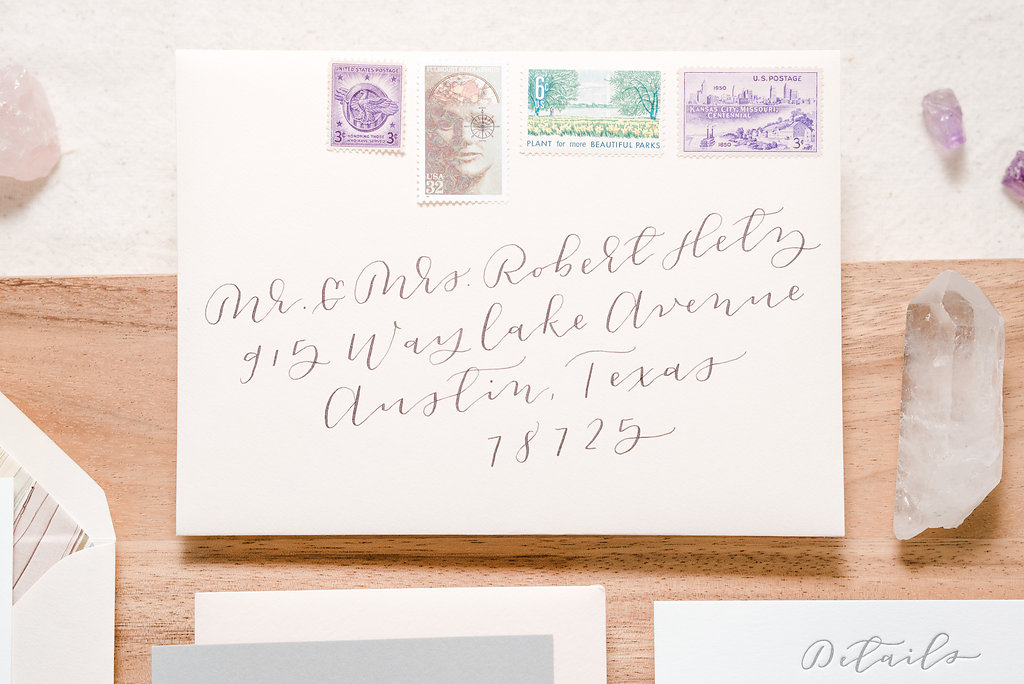 UNITED STATES POSTAGE
3¢ 3¢
HONORING THOSE
WHO HAVE SERVED
USA
32
6¢
US
PLANT for more BEAUTIFUL PARKS
U.S. POSTAGE
1950
KANSAS CITY, MISSOURI
CENTENNIAL
1850
3¢
Mr. & Mrs. Robert Hetz
915 Waylake Avenue
Austin, Texas
78725
Details